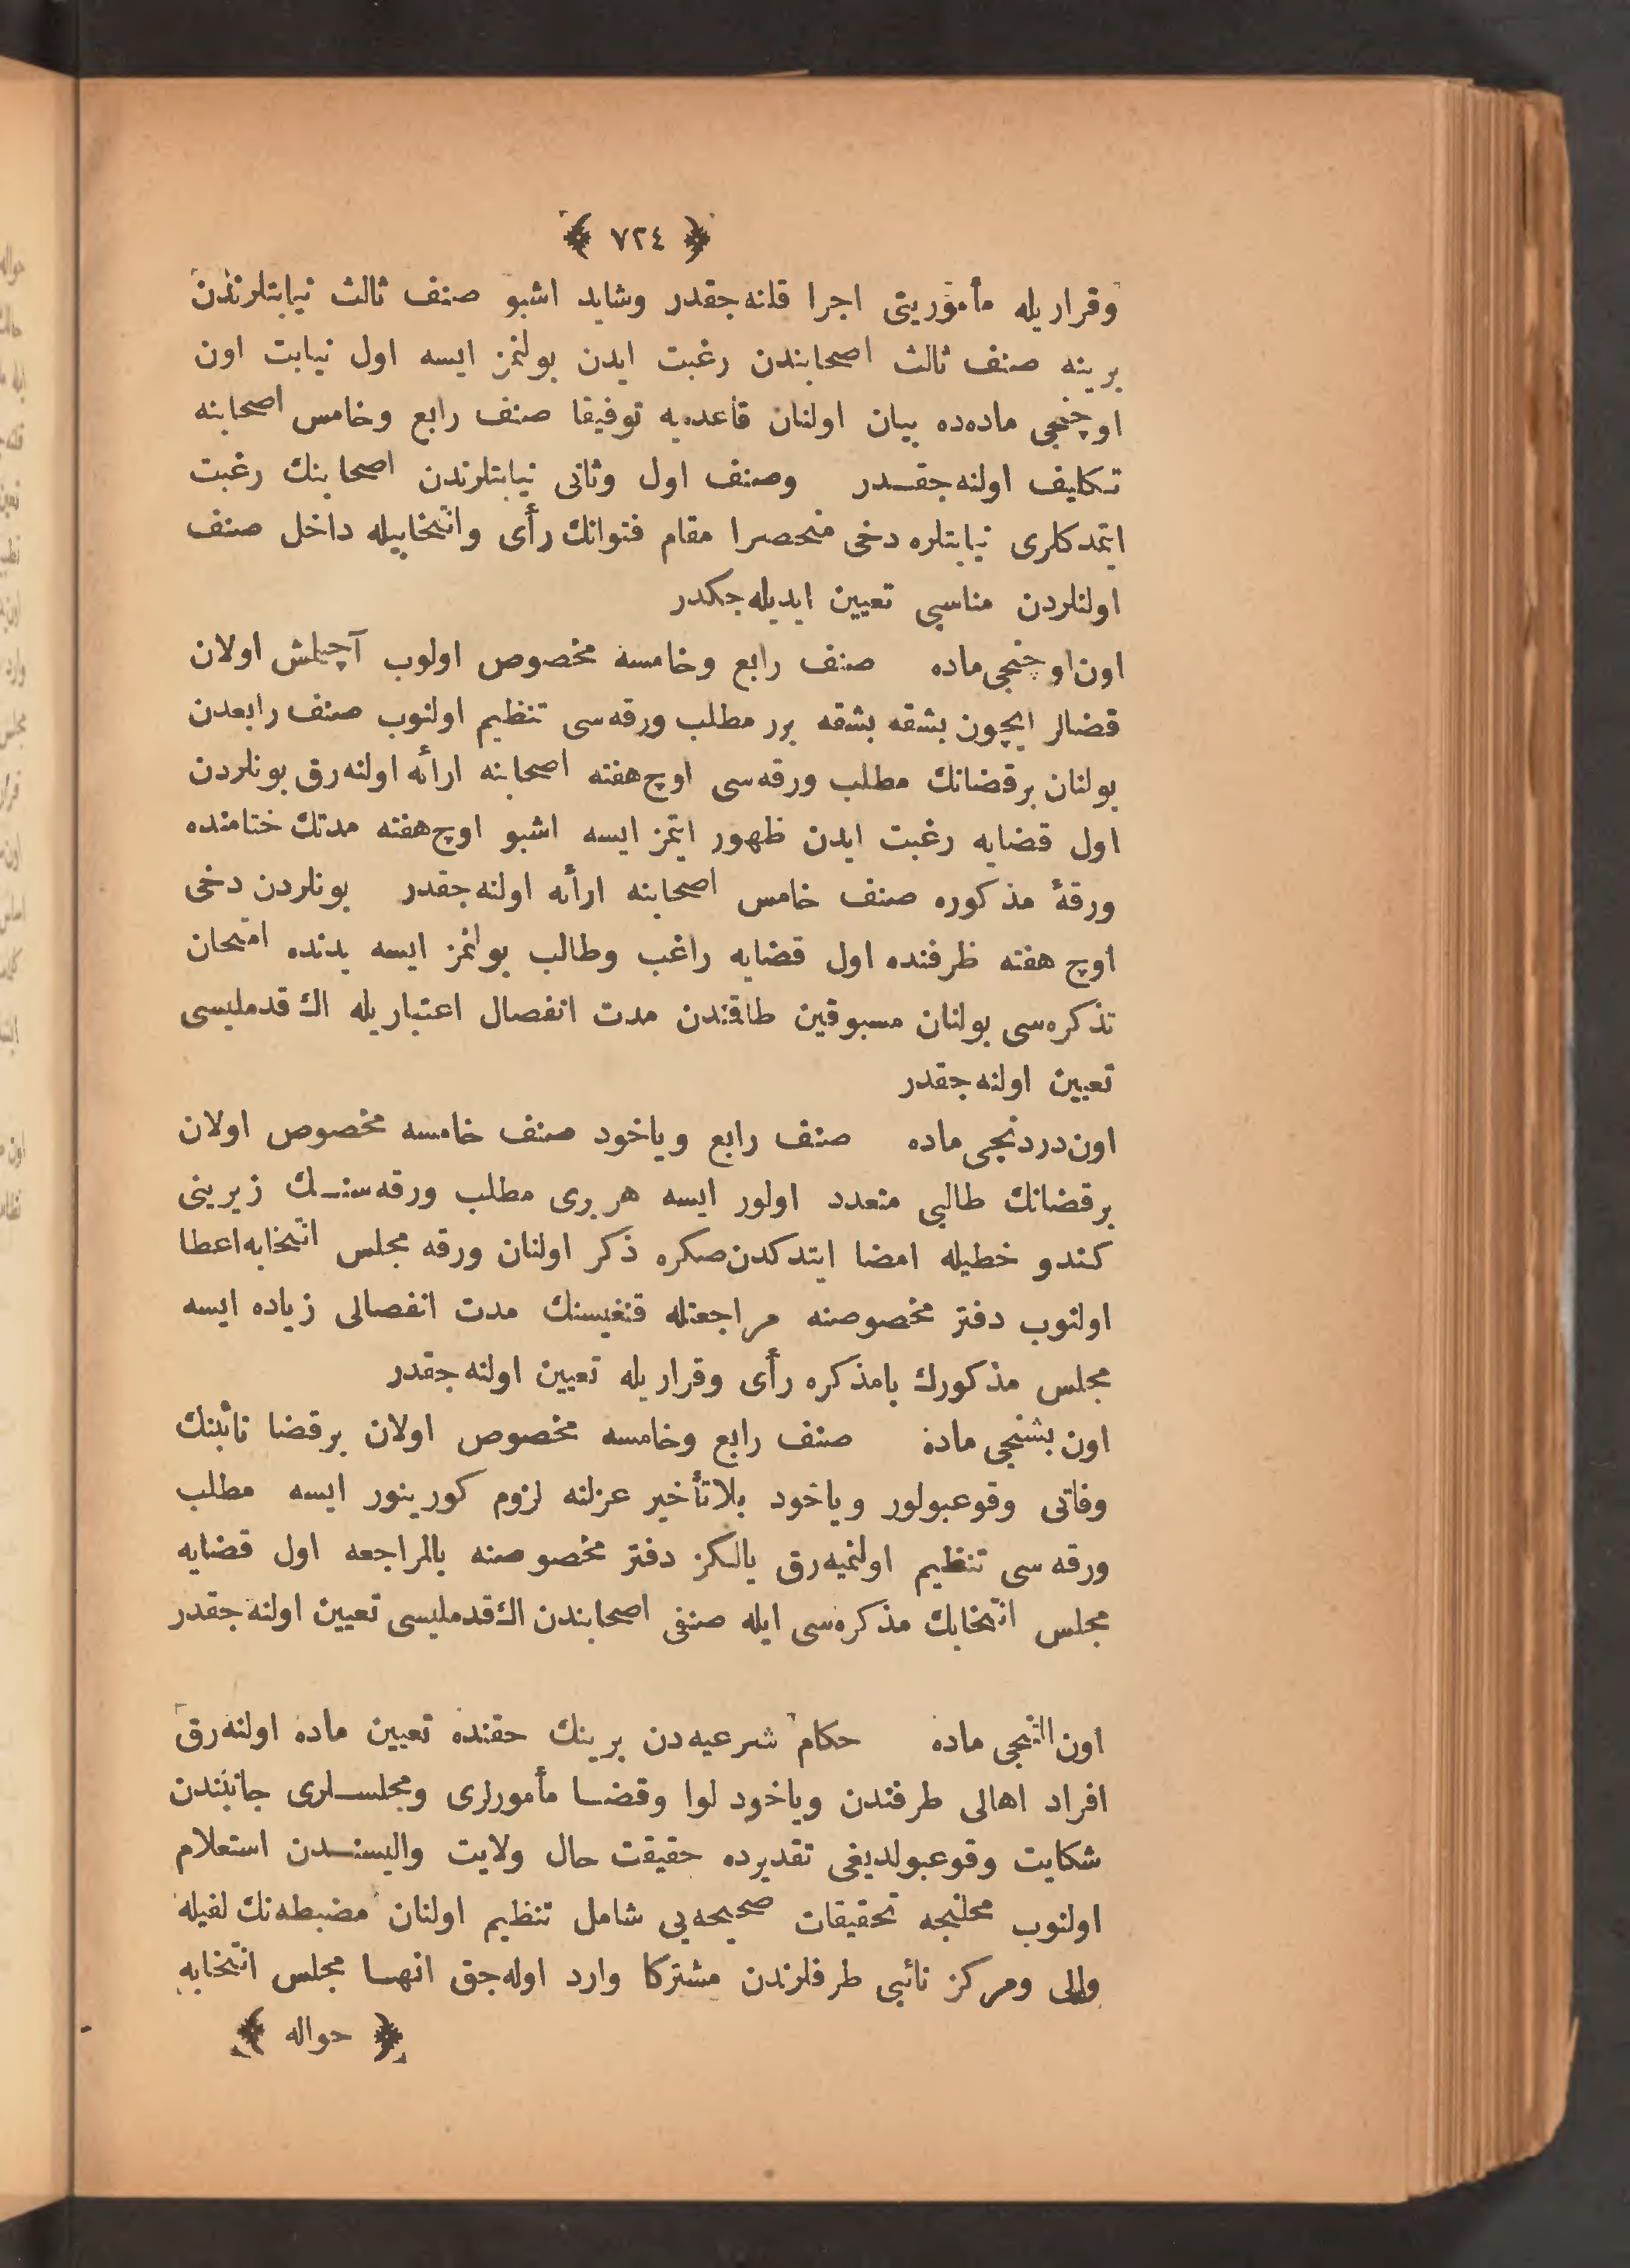 ﴿ ٧٢٤ ﴾
وقراريله مأموريتى اجرا قلنه‌جقدر وشايد اشبو صنف ثالث نيابتلرندن
برينه صنف ثالث اصحابندن رغبت ايدن بولنمز ايسه اول نيابت اون
اوچنجى ماده‌ده بيان اولنان قاعده‌يه توفيقا صنف رابع وخامس اصحابنه
تكليف اولنه‌جقدر وصنف اول وثانى نيابتلرندن اصحابنك رغبت
ايتمدكلرى نيابتلره دخى منحصرا مقام فتوانك رأى وانتخابيله داخل صنف
اولنلردن مناسبى تعيين ايديله‌جكدر
اون‌اوچنجى‌ماده صنف رابع وخامسه مخصوص اولوب آچيلمش اولان
قضالر ايچون بشقه بشقه برر مطلب ورقه‌سى تنظيم اولنوب صنف رابعدن
بولنان برقضانك مطلب ورقه‌سى اوچ‌هفته اصحابنه ارائه اولنه‌رق بونلردن
اول قضايه رغبت ايدن ظهور ايتمز ايسه اشبو اوچ‌هفته مدتك ختامنده
ورقهٔ مذكوره صنف خامس اصحابنه ارائه اولنه‌جقدر بونلردن دخى
اوچ هفته ظرفنده اول قضايه راغب وطالب بولنمز ايسه يدنده امتحان
تذكره‌سى بولنان مسبوقين طاقندن مدت انفصال اعتباريله الك قدمليسى
تعيين اولنه‌جقدر
اون‌دردنجى‌ماده صنف رابع وياخود صنف خامسه مخصوص اولان
برقضانك طالبى متعدد اولور ايسه هربرى مطلب ورقه‌سنـك زيرينى
كندو خطيله امضا ايتدكدن‌صكره ذكر اولنان ورقه مجلس انتخابه‌اعطا
اولنوب دفتر مخصوصنه مراجعتله قنغيسنك مدت انفصالى زياده ايسه
مجلس مذكورك بامذكره رأى وقراريله تعيين اولنه‌جقدر
اون بشنجى ماده صنف رابع وخامسه مخصوص اولان برقضا نائبنك
وفاتى وقوعبولور وياخود بلاتأخير عزلنه لزوم كورينور ايسه مطلب
ورقه‌سى تنظيم اولنميه‌رق يالكز دفتر مخصوصنه بالمراجعه اول قضايه
مجلس انتخابك مذكره‌سى ايله صنفى اصحابندن الك‌قدمليسى تعيين اولنه‌جقدر
اون‌التنجى ماده حكام شرعيه‌دن برينك حقنده تعيين ماده اولنه‌رق
افراد اهالى طرفندن وياخود لوا وقضـا مأمورلرى ومجلسـلرى جانبندن
شكايت وقوعبولديغى تقديرده حقيقت حال ولايت واليسنـدن استعلام
اولنوب محلنجه تحقيقات صحيحه‌يى شامل تنظيم اولنان مضبطه‌نك لفيله
والى ومركز نائبى طرفلرندن مشتركا وارد اوله‌جق انهـا مجلس انتخابه
﴿ حواله ﴾